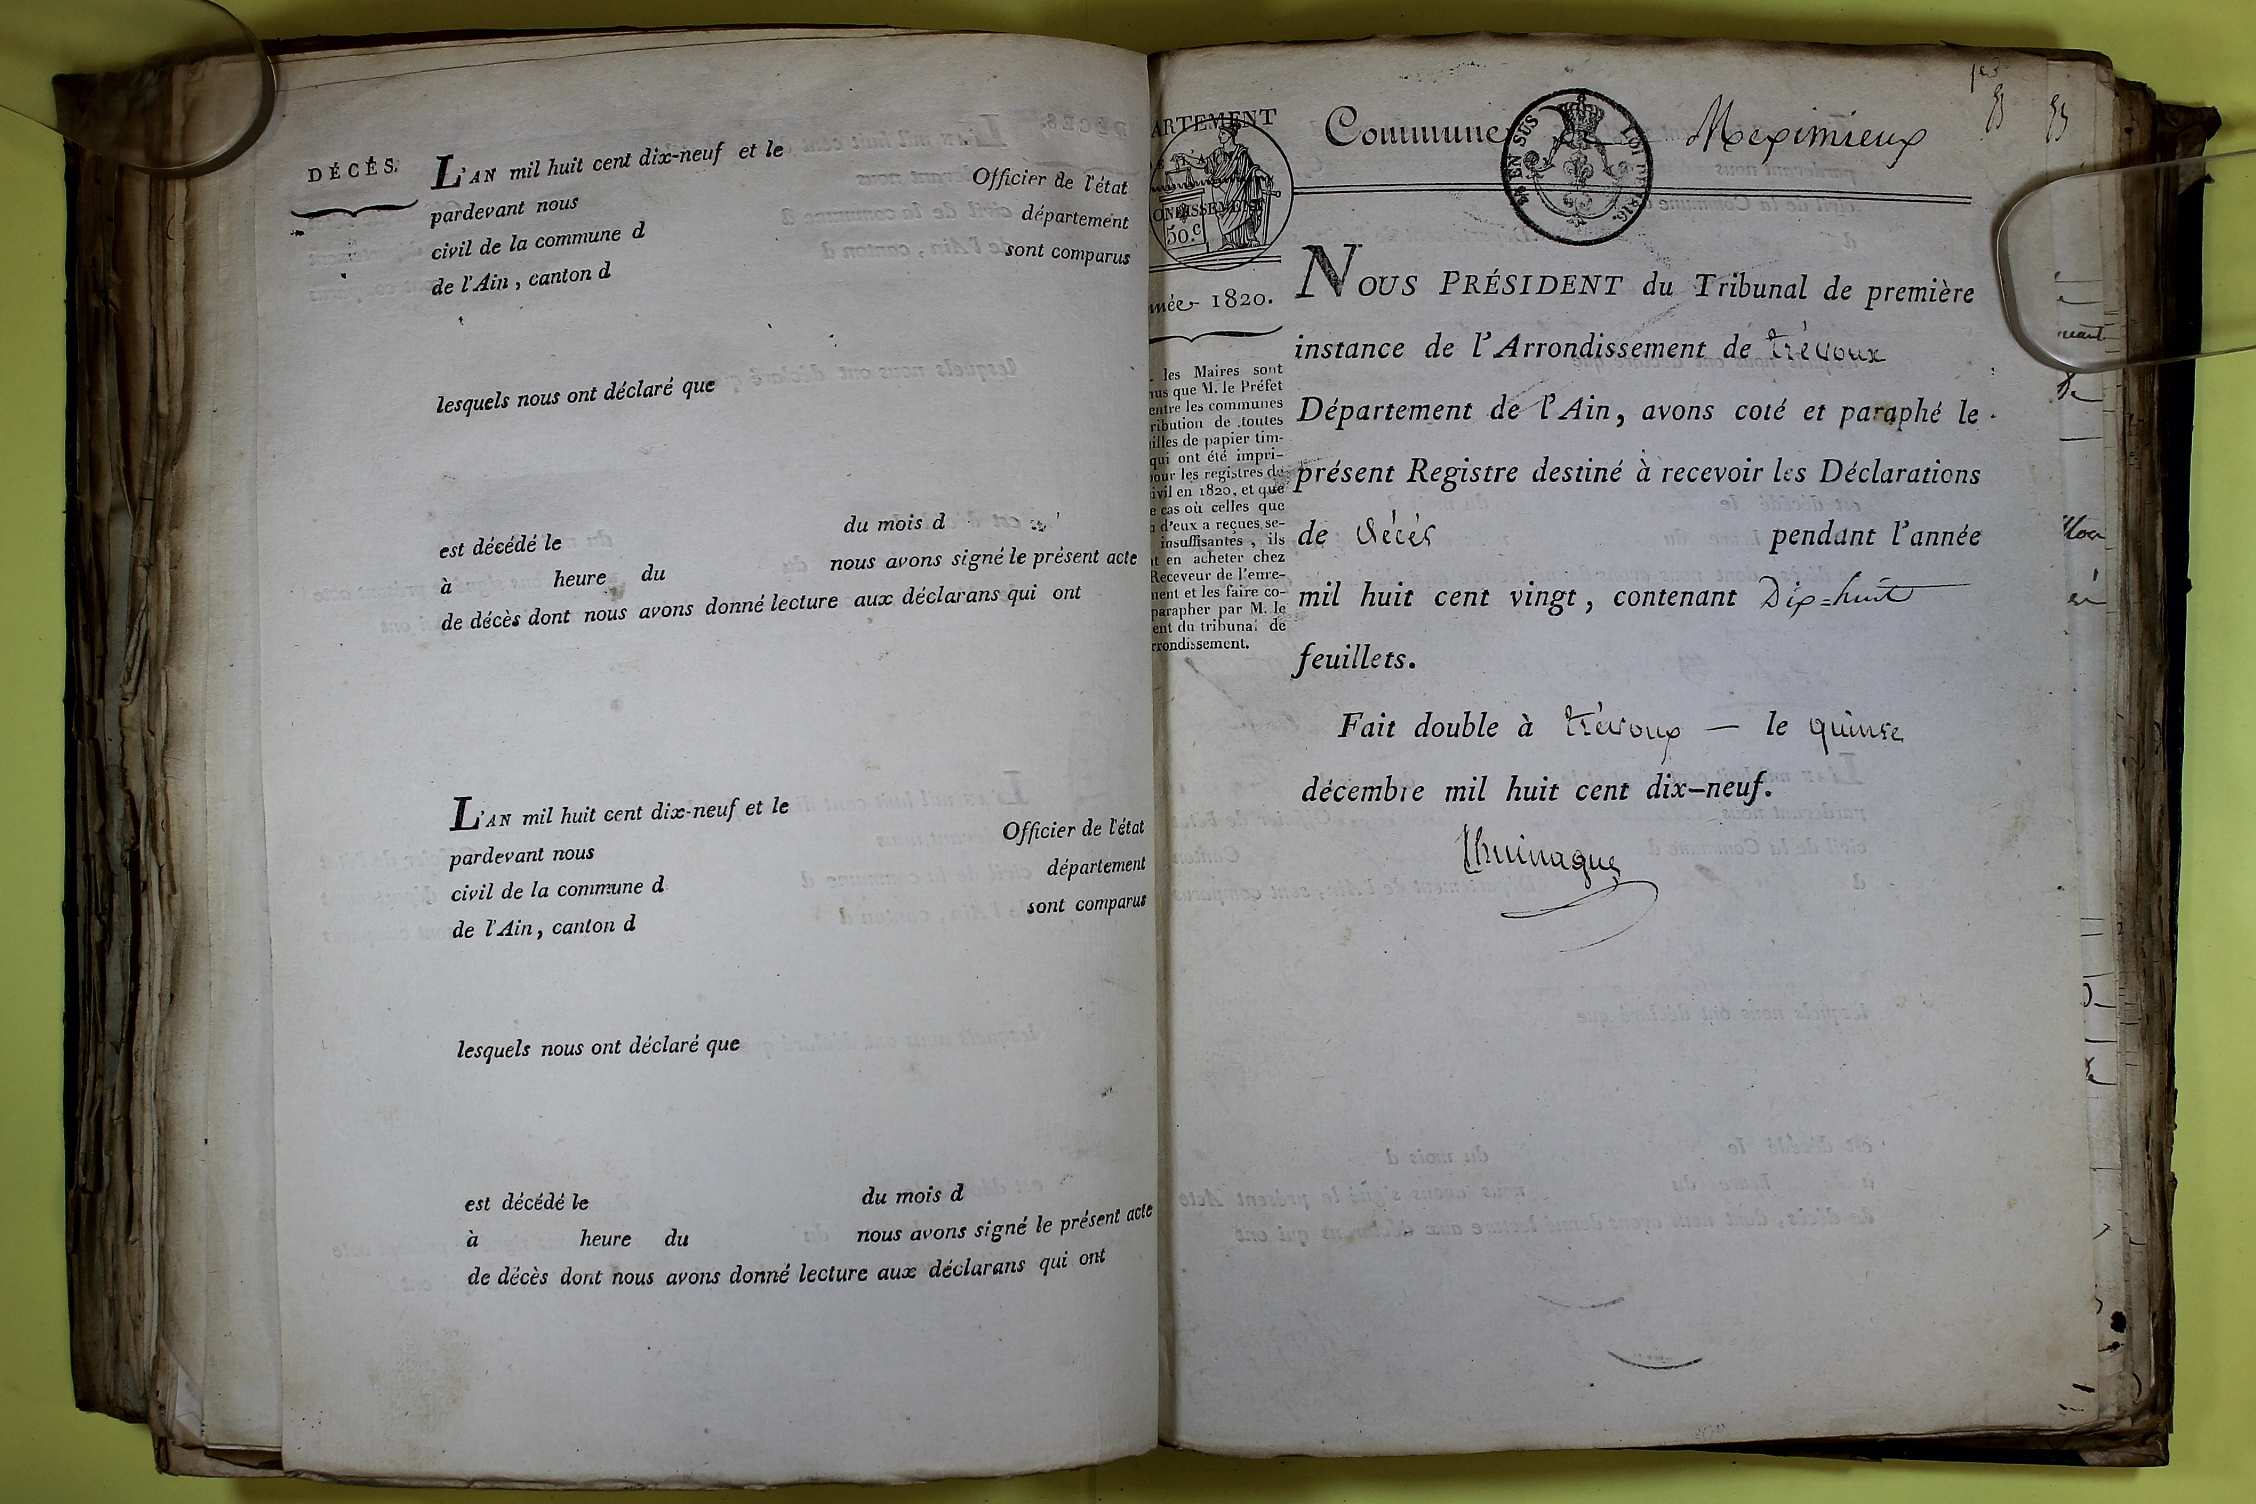 DÉCÈS.
L'AN mil huit cent dix-neuf et le
pardevant nous Officier de l'état
civil de la commune d département
de l'Ain, canton d sont comparus
lesquels nous ont déclaré que
est décédé le du mois d
à heure du nous avons signé le présent acte
de décès dont nous avons donné lecture aux déclarans qui ont
L'AN mil huit cent dix-neuf et le
pardevant nous Officier de l'état
civil de la commune d département
de l'Ain, canton d sont comparus
lesquels nous ont déclaré que
est décédé le du mois d
à heure du nous avons signé le présent acte
de décès dont nous avons donné lecture aux déclarans qui ont
ARTEMENT
ONDISSEMENT
50.c
née 1820.
les Maires sont
us que M. le Préfet
entre les communes
ribution de toutes
illes de papier tim-
qui ont été impri-
our les registres de
ivil en 1820, et que
e cas où celles que
d'eux a reçues se-
insuffisantes, ils
t en acheter chez
Receveur de l'enre-
ment et les faire co-
parapher par M. le
ent du tribunal de
rrondissement.
Commune Meximieux
EN SUS
LOI DE 1816.
NOUS PRÉSIDENT du Tribunal de première
instance de l'Arrondissement de trévoux
Département de l'Ain, avons coté et paraphé le
présent Registre destiné à recevoir les Déclarations
de Décès pendant l'année
mil huit cent vingt, contenant Dix-huit
feuillets.
Fait double à trévoux — le quinze
décembre mil huit cent dix-neuf.